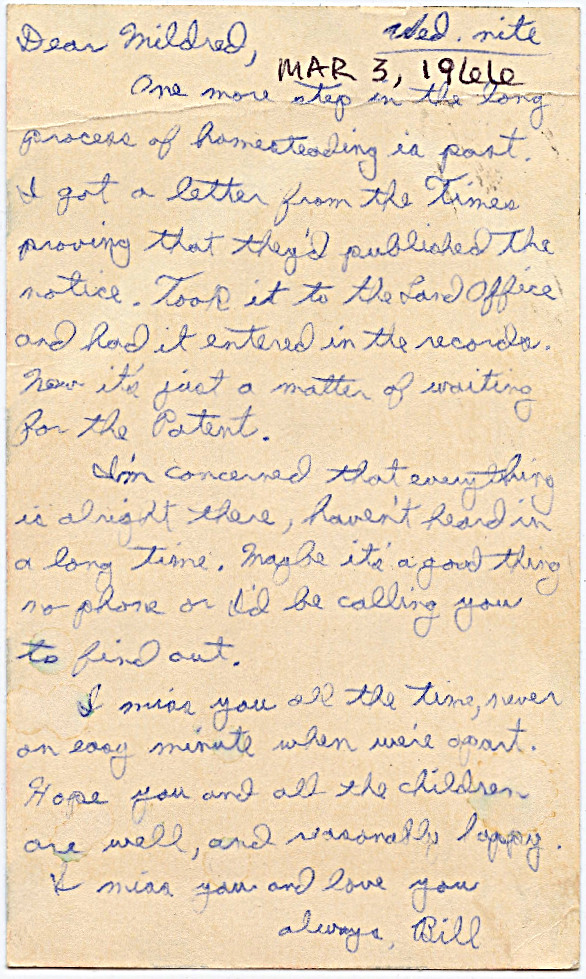 Dear Mildred,
Wed. nite
MAR 3, 1966
One more step in the long
process of homesteading is past.
I got a letter from the Times
proving that they'd published the
notice. Took it to the Land Office
and had it entered in the records.
Now it's just a matter of waiting
for the Patent.
I'm concerned that everything
is alright there, haven't heard in
a long time. Maybe it's a good thing
no phone or I'd be calling you
to find out.
I miss you all the time, never
an easy minute when we're apart.
Hope you and all the children
are well, and reasonably happy.
I miss you and love you
always, Bill